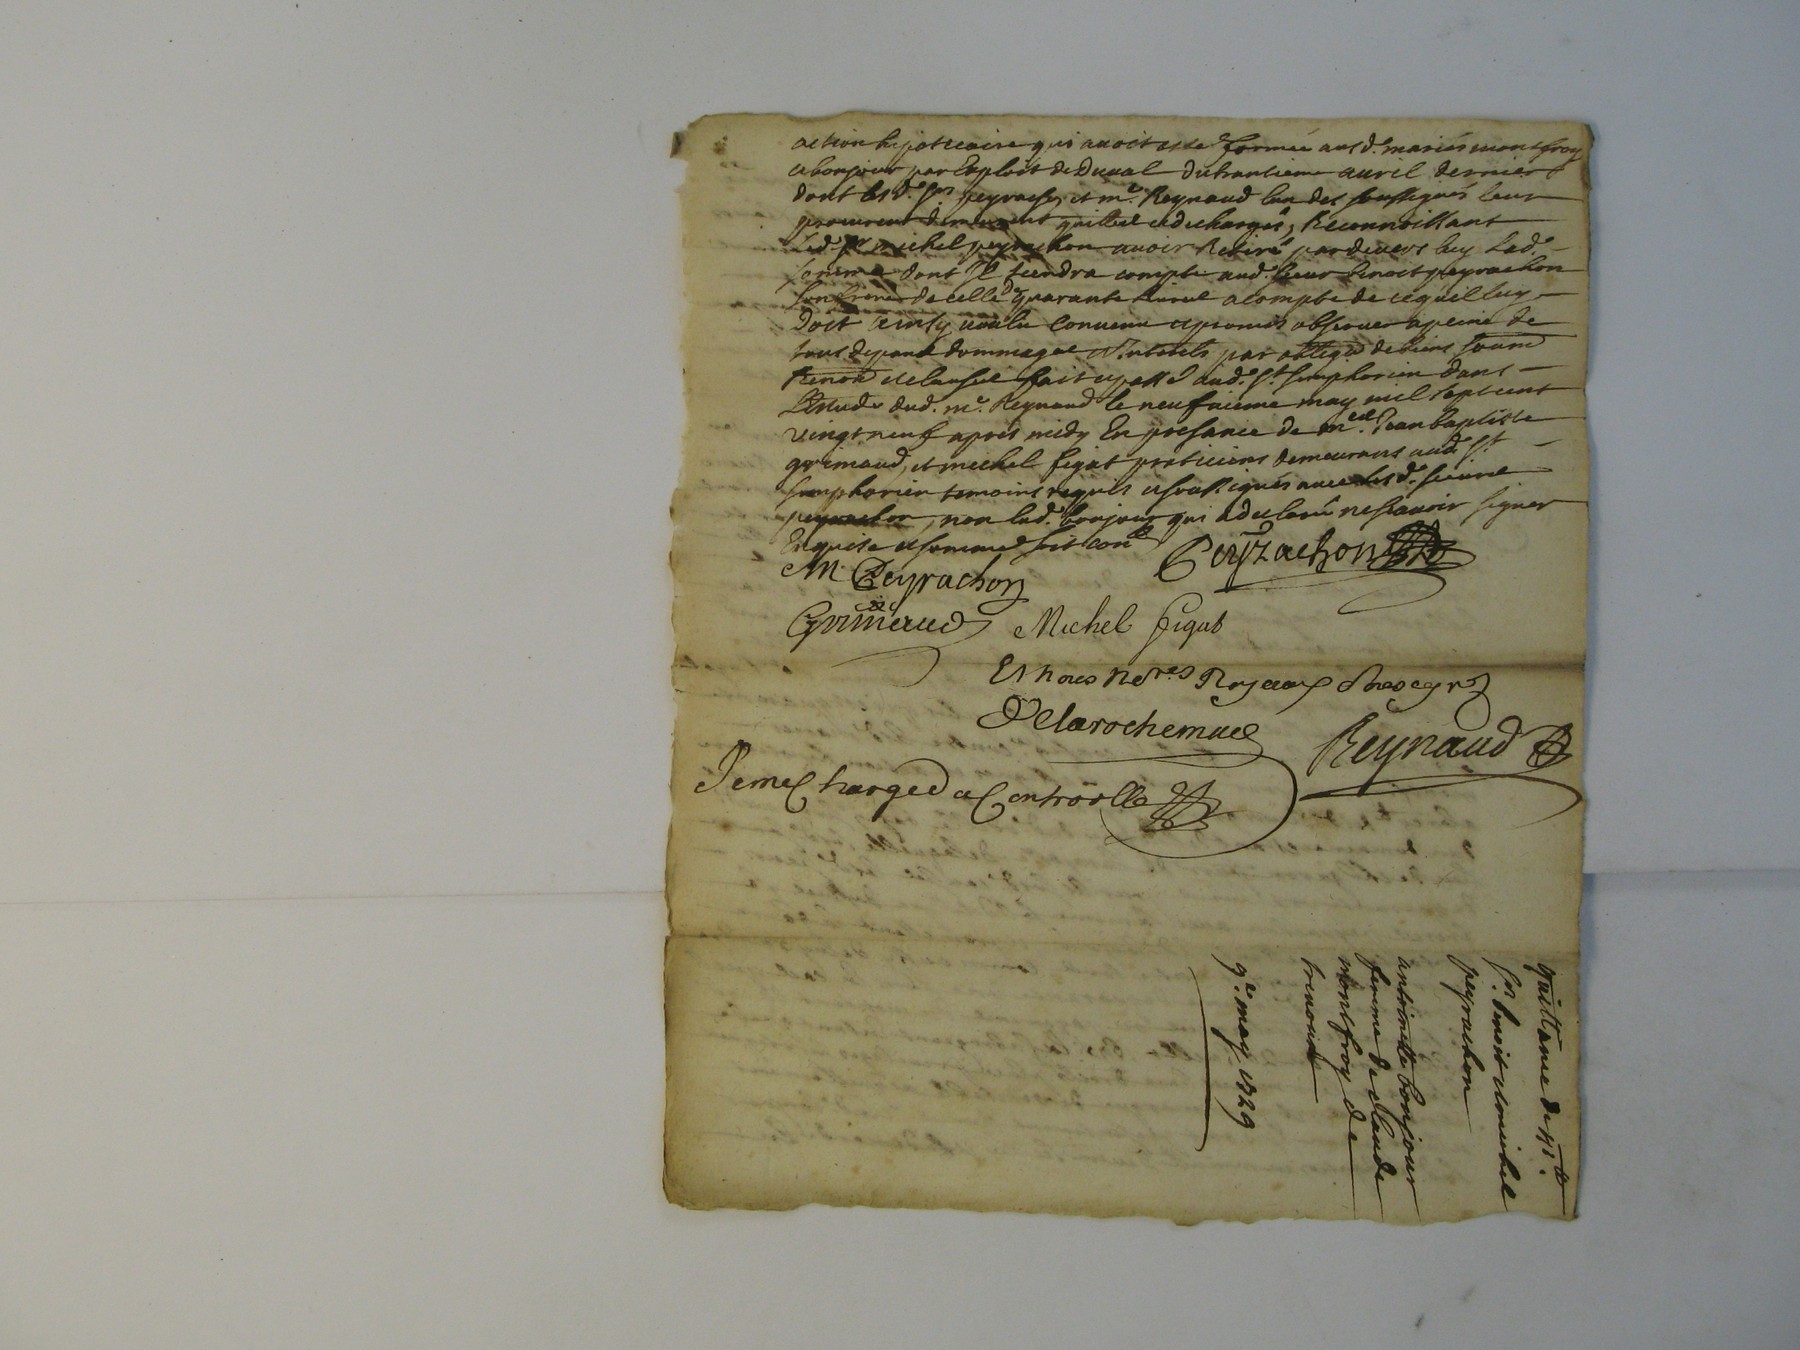 action hipoteccaire qui avoit esté formée aus d. mariés montfroy
et bonjour par Exploit de Duval du trantieme avril dernier
dont les d. srs. peyrachon et me. Reynaud lun des soussignés leur
procureur demeurent quittes et decharges, Reconnoissant
led. sr michel peyrachon avoir Retiré pardevers luy lad.
somme dont Il tiendra compte aud. sieur benoit peyrachon
son frere de celle de quarante livres acompte de ce quil luy
doit ainsy voulu convenu et promis observer a peine de
tous depans dommages et Interets par obligon de biens soumis
Renon et clauses fait et passé aud. st. simphorien dans
L'Estude dud. me. Reynaud le neufvieme may mil sept cent
vingt neuf apres midy En presance de Jean baptiste
grimaud, et michel figat praticiens demeurans aud. st.
simphorien temoins requis et soussignés avec les d. sieurs
peyrachon, non lad. bonjour qui a declaré ne scavoir signer
Enquise et sommée soit con.lé
Peyrachon
M Peyrachon
Grimaud Michel figat
Et nous Nores Royaux
Delarochemure
Reynaud
Je me Charge du Controolle
quittance de
srs. benoit et michel
peyrachon
antoinette bonjour
femme de claude
montfroy de
9e. may 1729